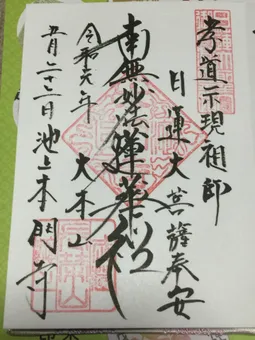 孝道示現祖師
日蓮大菩薩奉安
南無妙法蓮華経
令和元年 大本山
五月二十二日 池上本門寺